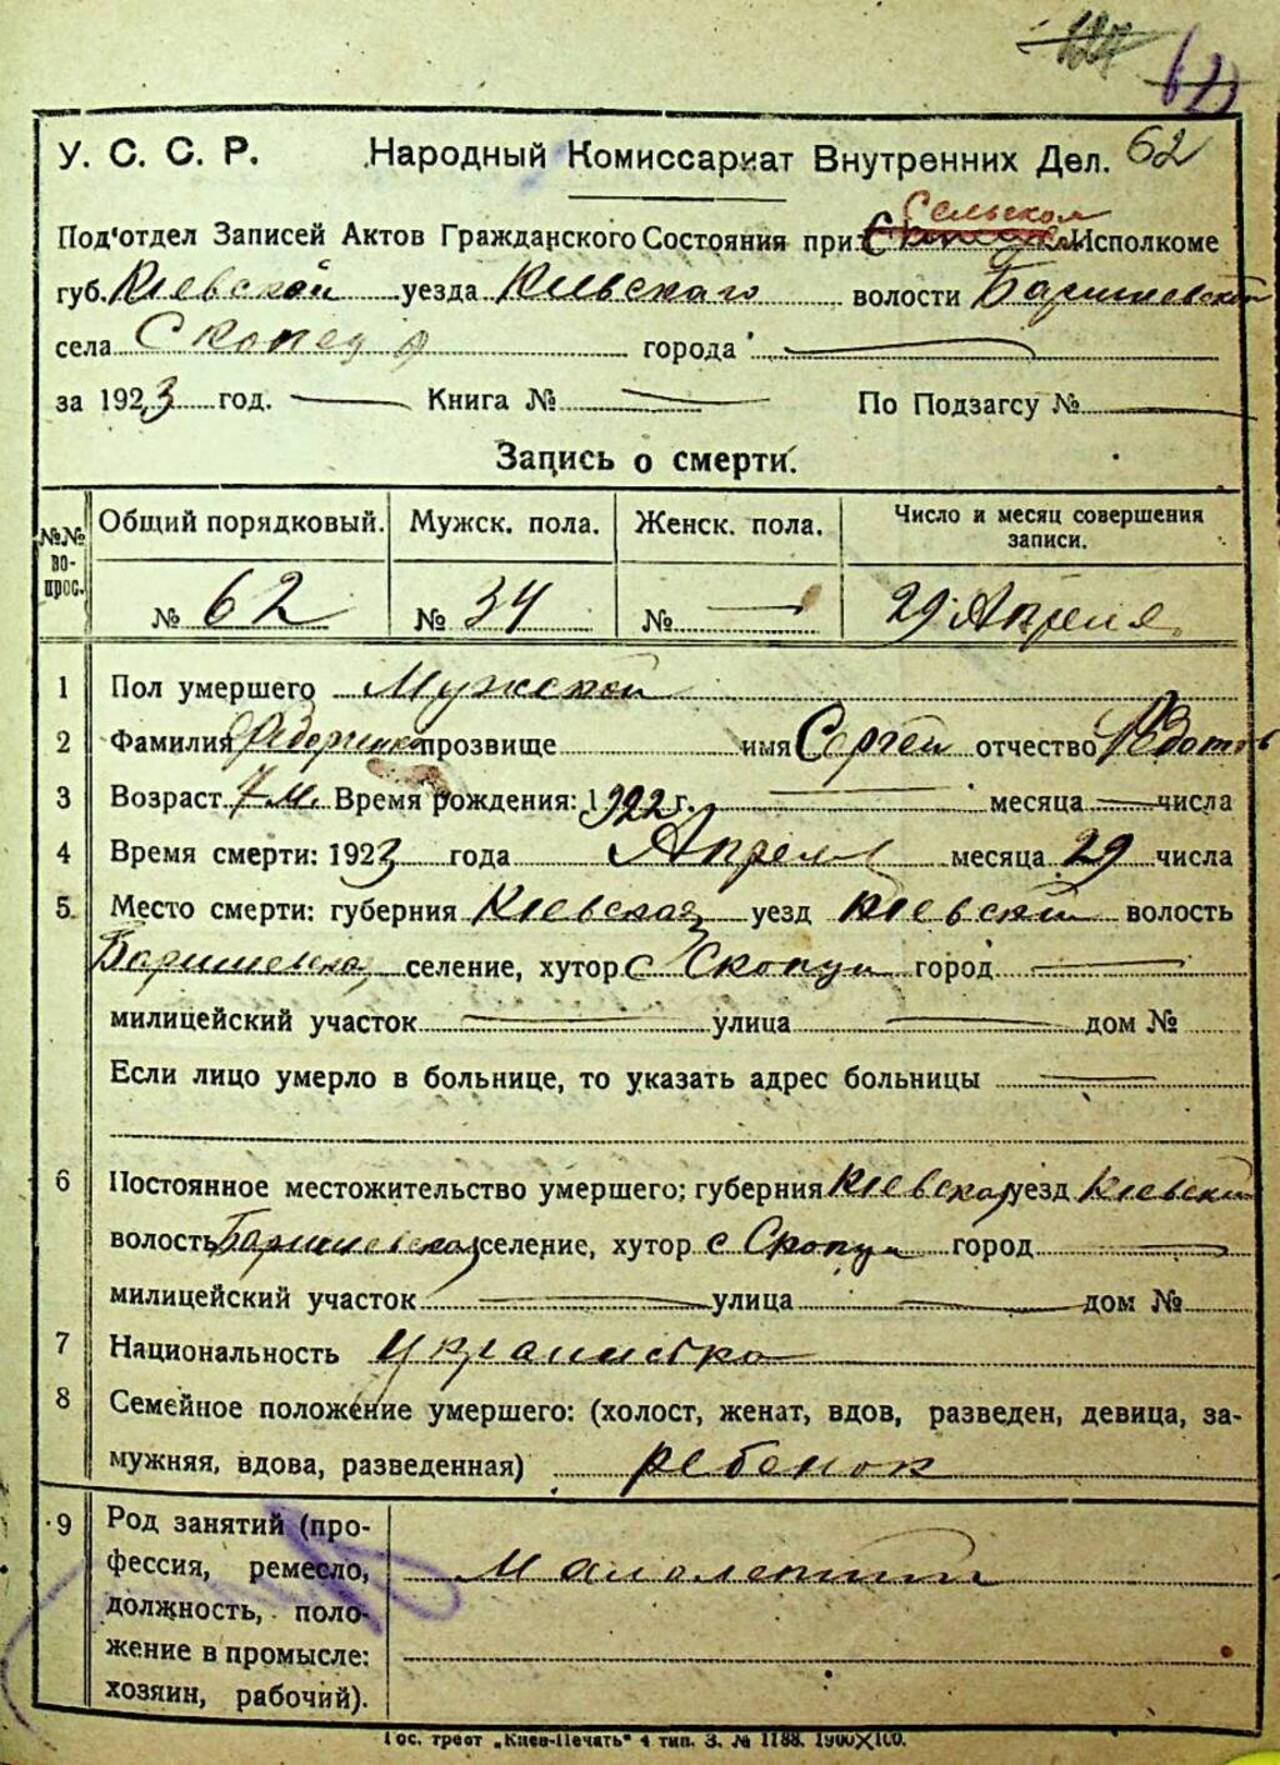 62
У. С. С. Р. Народный Комиссариат Внутренних Дел. 62
Сельском
Под'отдел Записей Актов Гражданского Состояния при Исполкоме
губ. Киевской уезда Киевскаго волости Баришевской
села Скопцы города
за 1923 год. Книга № По Подзагсу №
Запись о смерти.
№№ вопрос. Общий порядковый. Мужск. пола. Женск. пола. Число и месяц совершения записи.
№ 62 № 34 № 29 Апреля
1 Пол умершего Мужской
2 Фамилия Федоренко прозвище имя Сергей отчество Федотов
3 Возраст 7 м. Время рождения: 1922 г. месяца числа
4 Время смерти: 1923 года Апреля месяца 29 числа
5 Место смерти: губерния Киевская уезд Киевский волость
Баришевская селение, хутор с Скопци город
милицейский участок улица дом №
Если лицо умерло в больнице, то указать адрес больницы
6 Постоянное местожительство умершего; губерния Киевская уезд Киевский
волость Баришевская селение, хутор с Скопци город
милицейский участок улица дом №
7 Национальность
8 Семейное положение умершего: (холост, женат, вдов, разведен, девица, за-
мужняя, вдова, разведенная) ребенок
9 Род занятий (про-
фессия, ремесло, Малолетний
должность, поло-
жение в промысле:
хозяин, рабочий).
Гос. трест „Киев-Печать" 4 тип. З. № 1188. 1900×100.